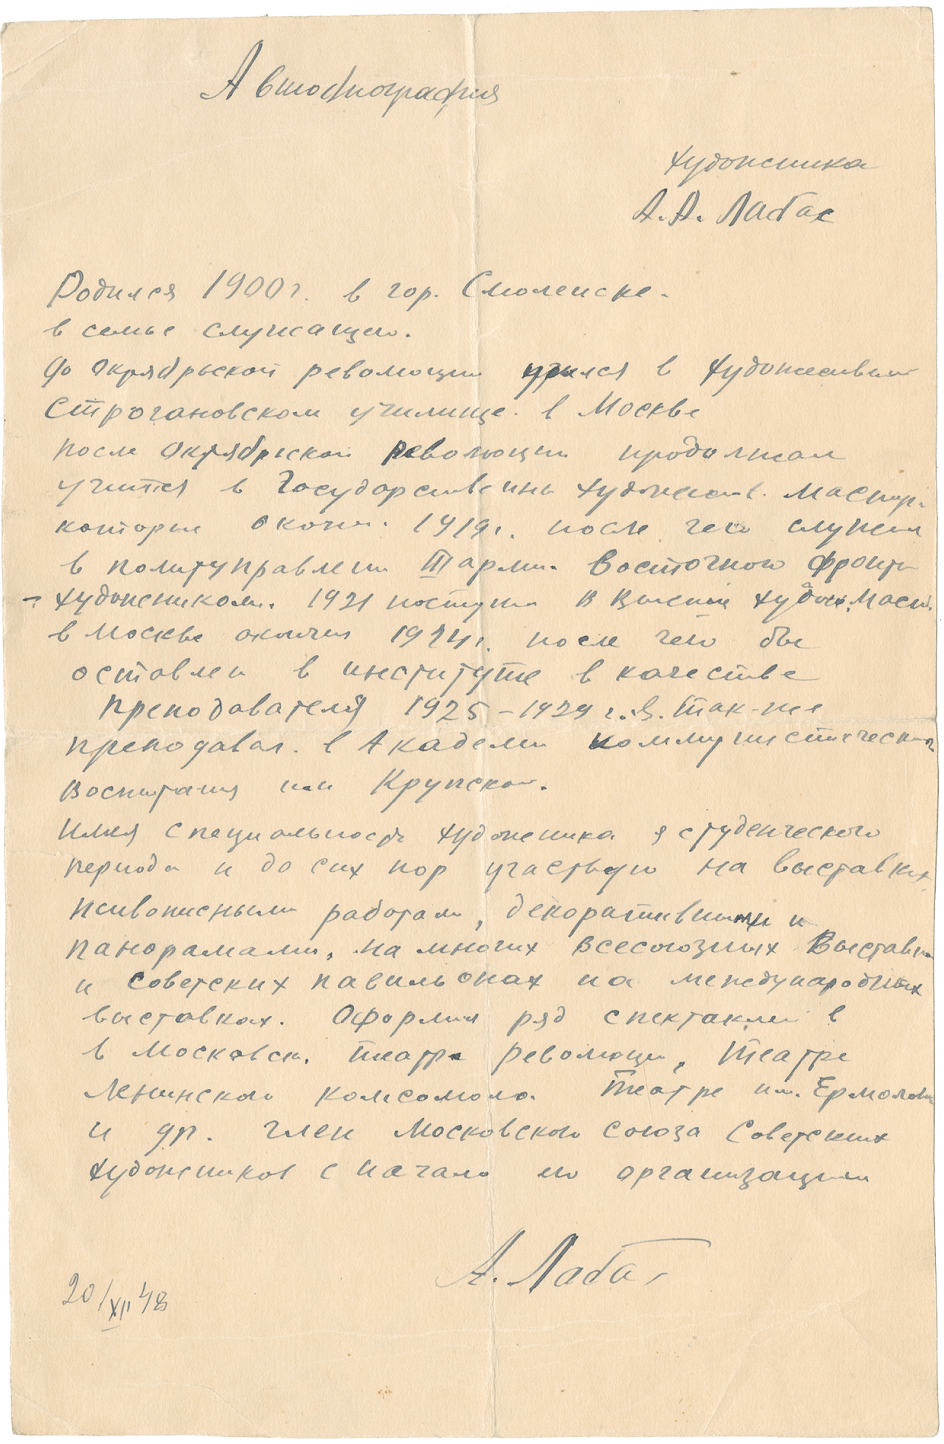 Автобиография
художника
А. А. Лабас
Родился 1900 г. в гор. Смоленске.
в семье служащего.
До Октябрьской революции учился в Художествен
Строгановском училище. в Москве
после Октябрьской революции продолжал
учится в Государственны художеств. мастер.
которые окончи. 1919 г. после чего служил
в политуправлени III арми. Восточного фронта
- художником. 1921 поступил в Высшие худож. маст.
в Москве окончил 1924 г. после чего был
оставлен в институте в качестве
преподавателя 1925 – 1929 г.г. Так-же
преподавал. в Академии коммунистическо
воспитания им Крупской.
Имея специальность художника я студенческого
периода и до сих пор участвую на выставках
живописными работами, декоративными и
панорамами, на многих всесоюзных Выставках
и советских павильонах на международных
выставках. Оформил ряд спектаклей в
в Московск. театре революции, Театре
Ленинского комсомола. Театре им. Ермоловой
и др. член Московского союза Советских
художников с начала его организации
А. Лабас
20/XII 48